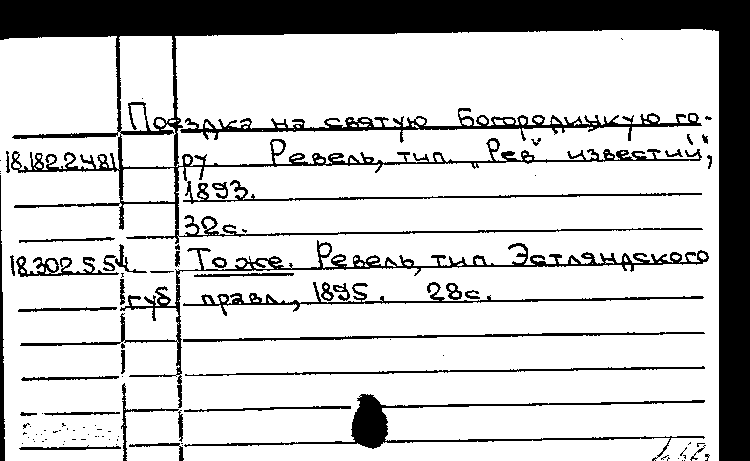 Поездка на святую Богородицкую го-
18.182.2.481 ру. Ревель, тип. „Рев. известий",
1893.
32с.
18.302.5.54 То же. Ревель, тип. Эстляндского
губ. правл., 1895. 28с.